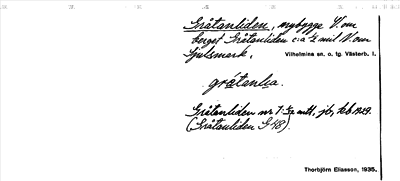 Gråtanliden, nybygge V. om
berget Gråtanliden c:a ½ mil V. om
Gulsmark. Vilhelmina sn. o. tg. Västerb. l.
gråtanlia.
Gråtanliden nr 1: mtl, jb, kb 1929.
(Gråtanliden G 48).
Thorbjörn Eliasson, 1935.